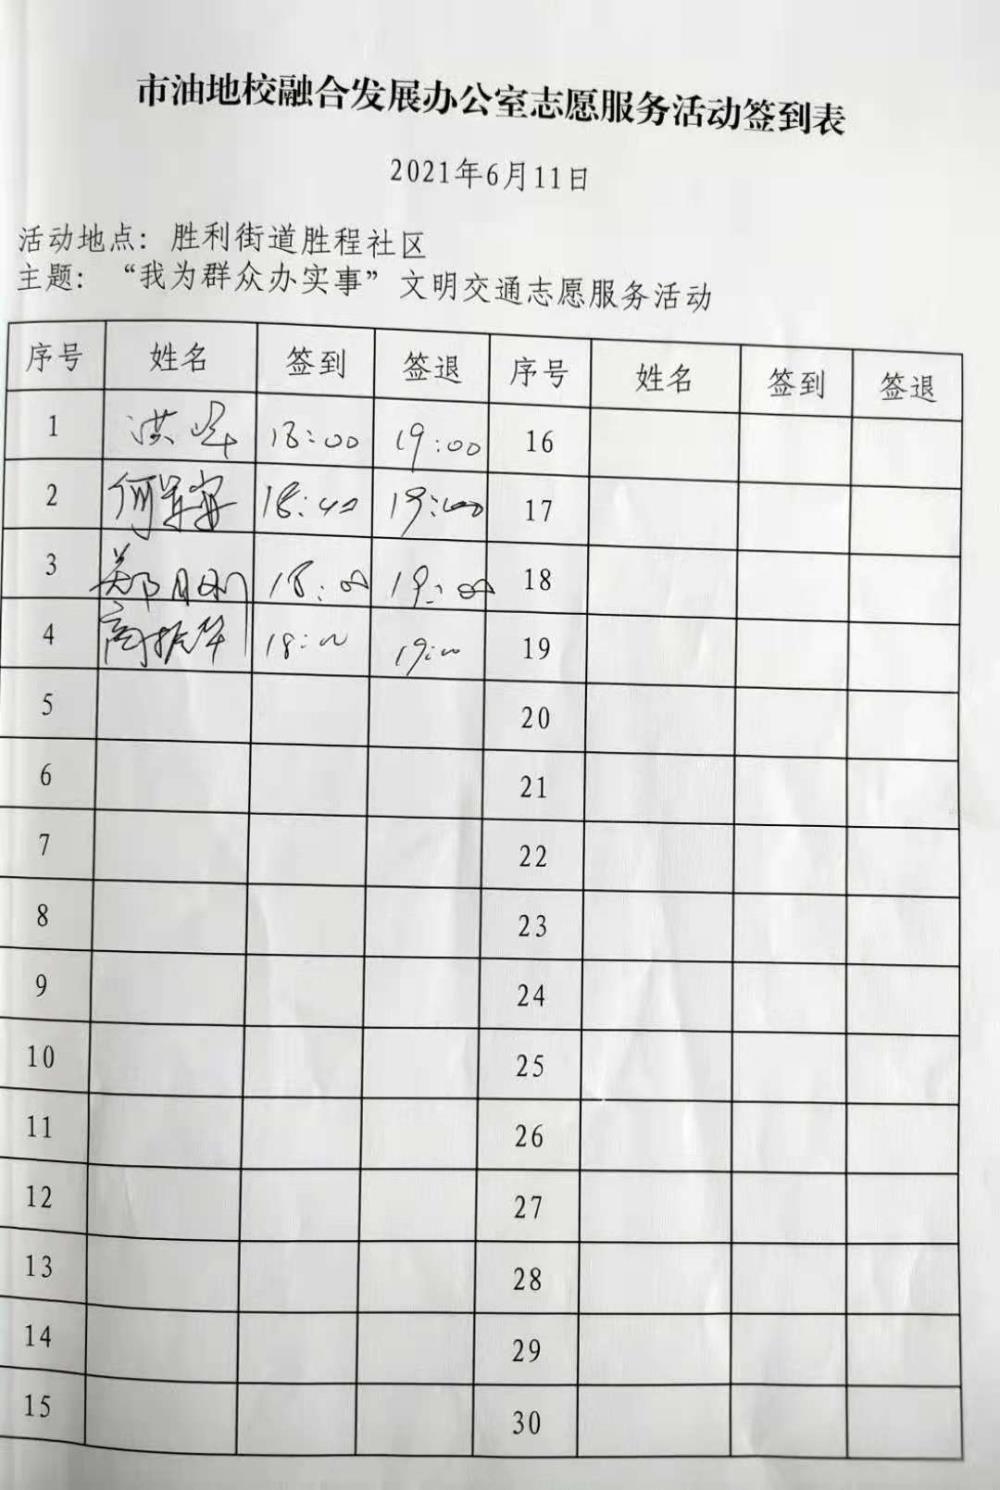 市油地校融合发展办公室志愿服务活动签到表
2021年6月11日
活动地点：胜利街道胜程社区
主题：“我为群众办实事”文明交通志愿服务活动
序号 姓名 签到 签退 序号 姓名 签到 签退
1 洪 18:00 19:00 16
2 何 19:00 17
3 郑 18:00 19:00 18
4 高振华 18:00 19:00 19
5 20
6 21
7 22
8 23
9 24
10 25
11 26
12 27
13 28
14 29
15 30